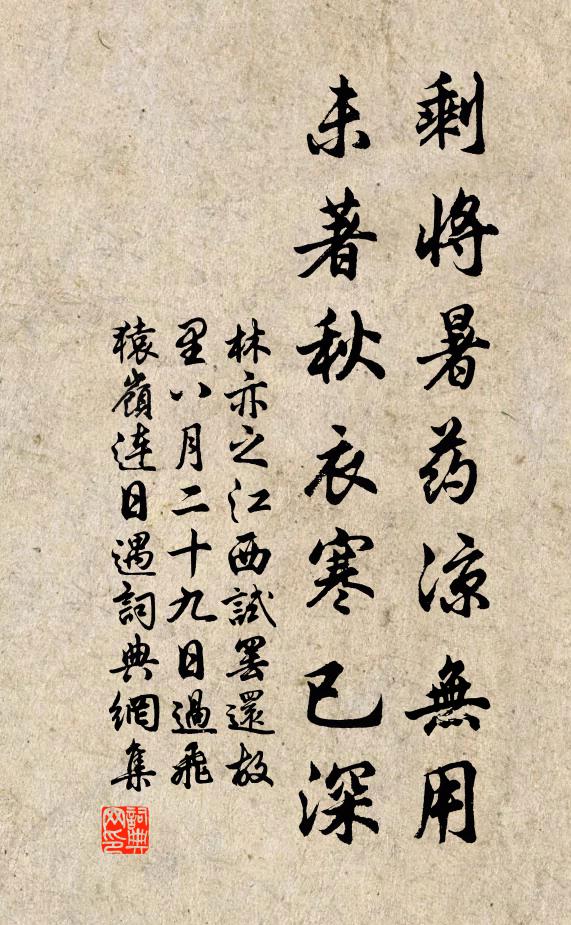 剩將暑药涼無用
未著秋衣寒已深
林亦之江西試罢還故
里八月二十九日過飛
猿嶺連日遇詞典網集
詞典网印